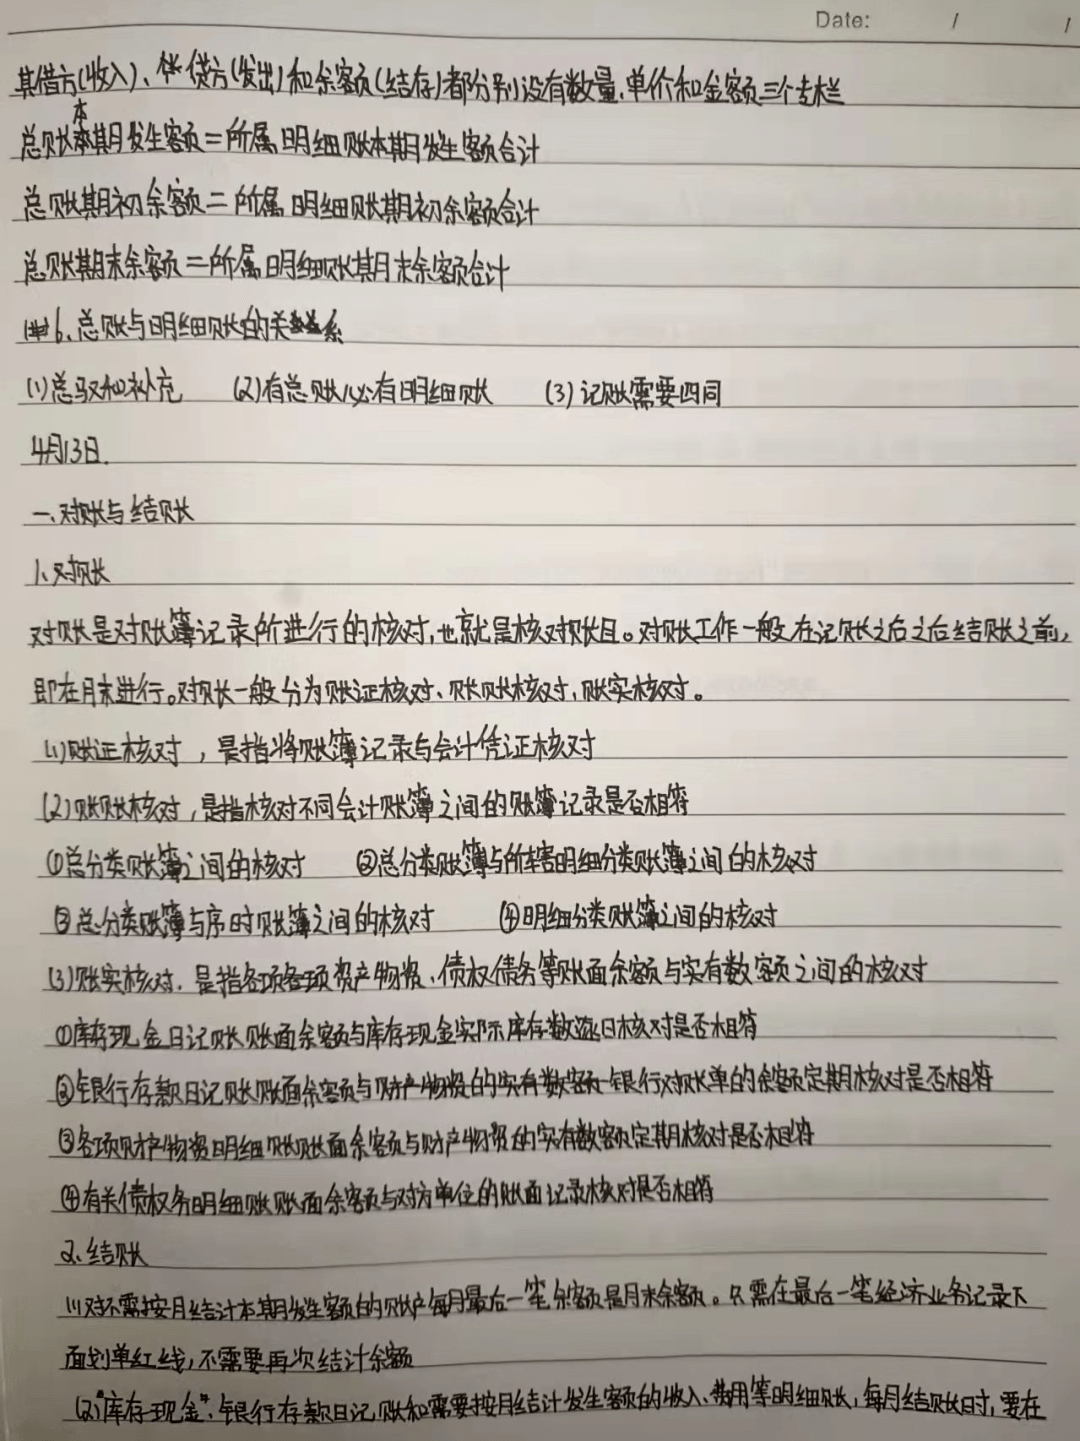 Date: / /
其借方(收入)、贷方(发出)和余额(结存)都分别设有数量、单价和金额三个专栏
总账本期发生额=所属明细账本期发生额合计
总账期初余额=所属明细账期初余额合计
总账期末余额=所属明细账期末余额合计
6、总账与明细账的关系
(1)总驭和补充 (2)有总账必有明细账 (3)记账需要四同
4月13日.
一、对账与结账
1、对账
对账是对账簿记录所进行的核对,也就是核对账目。对账工作一般在记账之后之后结账之前,
即在月末进行。对账一般分为账证核对、账账核对、账实核对。
(1)账证核对,是指将账簿记录与会计凭证核对
(2)账账核对,是指核对不同会计账簿之间的账簿记录是否相符
①总分类账簿之间的核对 ②总分类账簿与所辖明细分类账簿之间的核对
③总分类账簿与序时账簿之间的核对 ④明细分类账簿之间的核对
(3)账实核对.是指各项各项资产物资、债权债务等账面余额与实有数额之间的核对
①库存现金日记账账面余额与库存现金实际库存数逐日核对是否相符
②银行存款日记账账面余额与财产物资的实有数额银行对账单的余额定期核对是否相符
③各项财产物资明细账账面余额与财产物资的实有数额定期核对是否相符
④有关债权务明细账账面余额与对方单位的账面记录核对是否相符
2、结账
(1)对不需按月结计本期发生额的账户每月最后一笔余额是月末余额。只需在最后一笔经济业务记录下
面划单红线,不需要再次结计余额
(2)库存现金、银行存款日记账和需要按月结计发生额的收入、费用等明细账,每月结账时,要在